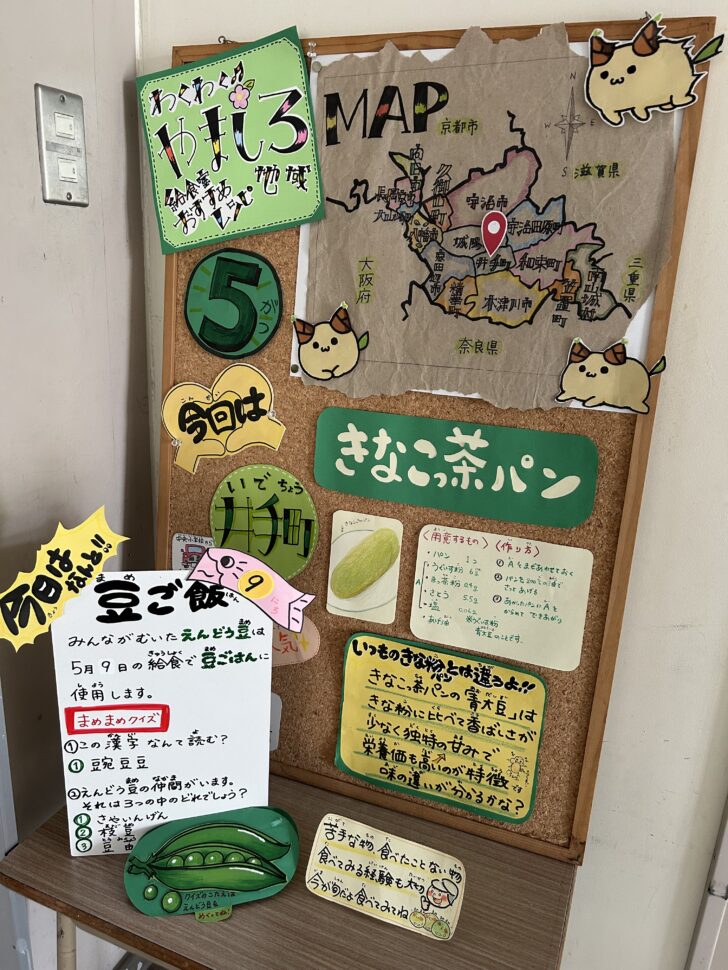 わくわく♪
やましろ
地域
給食室
おすすめ
レシピ
MAP
N
S
京都市
滋賀県
向日市
長岡京市
大山崎町
久御山町
八幡市
宇治市
宇治田原町
城陽
井手町
和束町
京田辺市
精華町
木津川市
笠置町
南山城村
大阪府
三重県
奈良県
5がつ
こんかい
今回は
いでちょう
井手町
きなこっ茶パン
〈用意するもの〉
・パン 1コ
・うぐいす粉 6g
・さとう 5.5g
・塩 0.06g
・あげ油
〈作り方〉
① Aをまぜあわせておく
② パンを200℃の油で
さっとあげる
③ あがったパンにAを
からめて できあがり
※うぐいす粉
青大豆のことです。
いつものきな粉とは違うよ!!
きなこっ茶パンの「青大豆」は
きな粉に比べて香ばしさが
少なく独特の甘みで
栄養価も高いのが特徴
味の違いが分かるかな?
今日は
なんと!!
9にち
まめ はん
豆ご飯
みんながむいたえんどう豆は
5月9日の給食で豆ごはんに
使用します。
まめまめクイズ
①この漢字なんて読む?
① 豌豆豆
②えんどう豆の仲間がいます。
それは3つの中のどれでしょう?
① さやいんげん
② 枝豆
③ 豆苗
クイズのこたえは
えんどう豆を
めくってね!
苦手な物 食べたことない物
食べてみる経験も大切
今が旬だよ食べてみてね